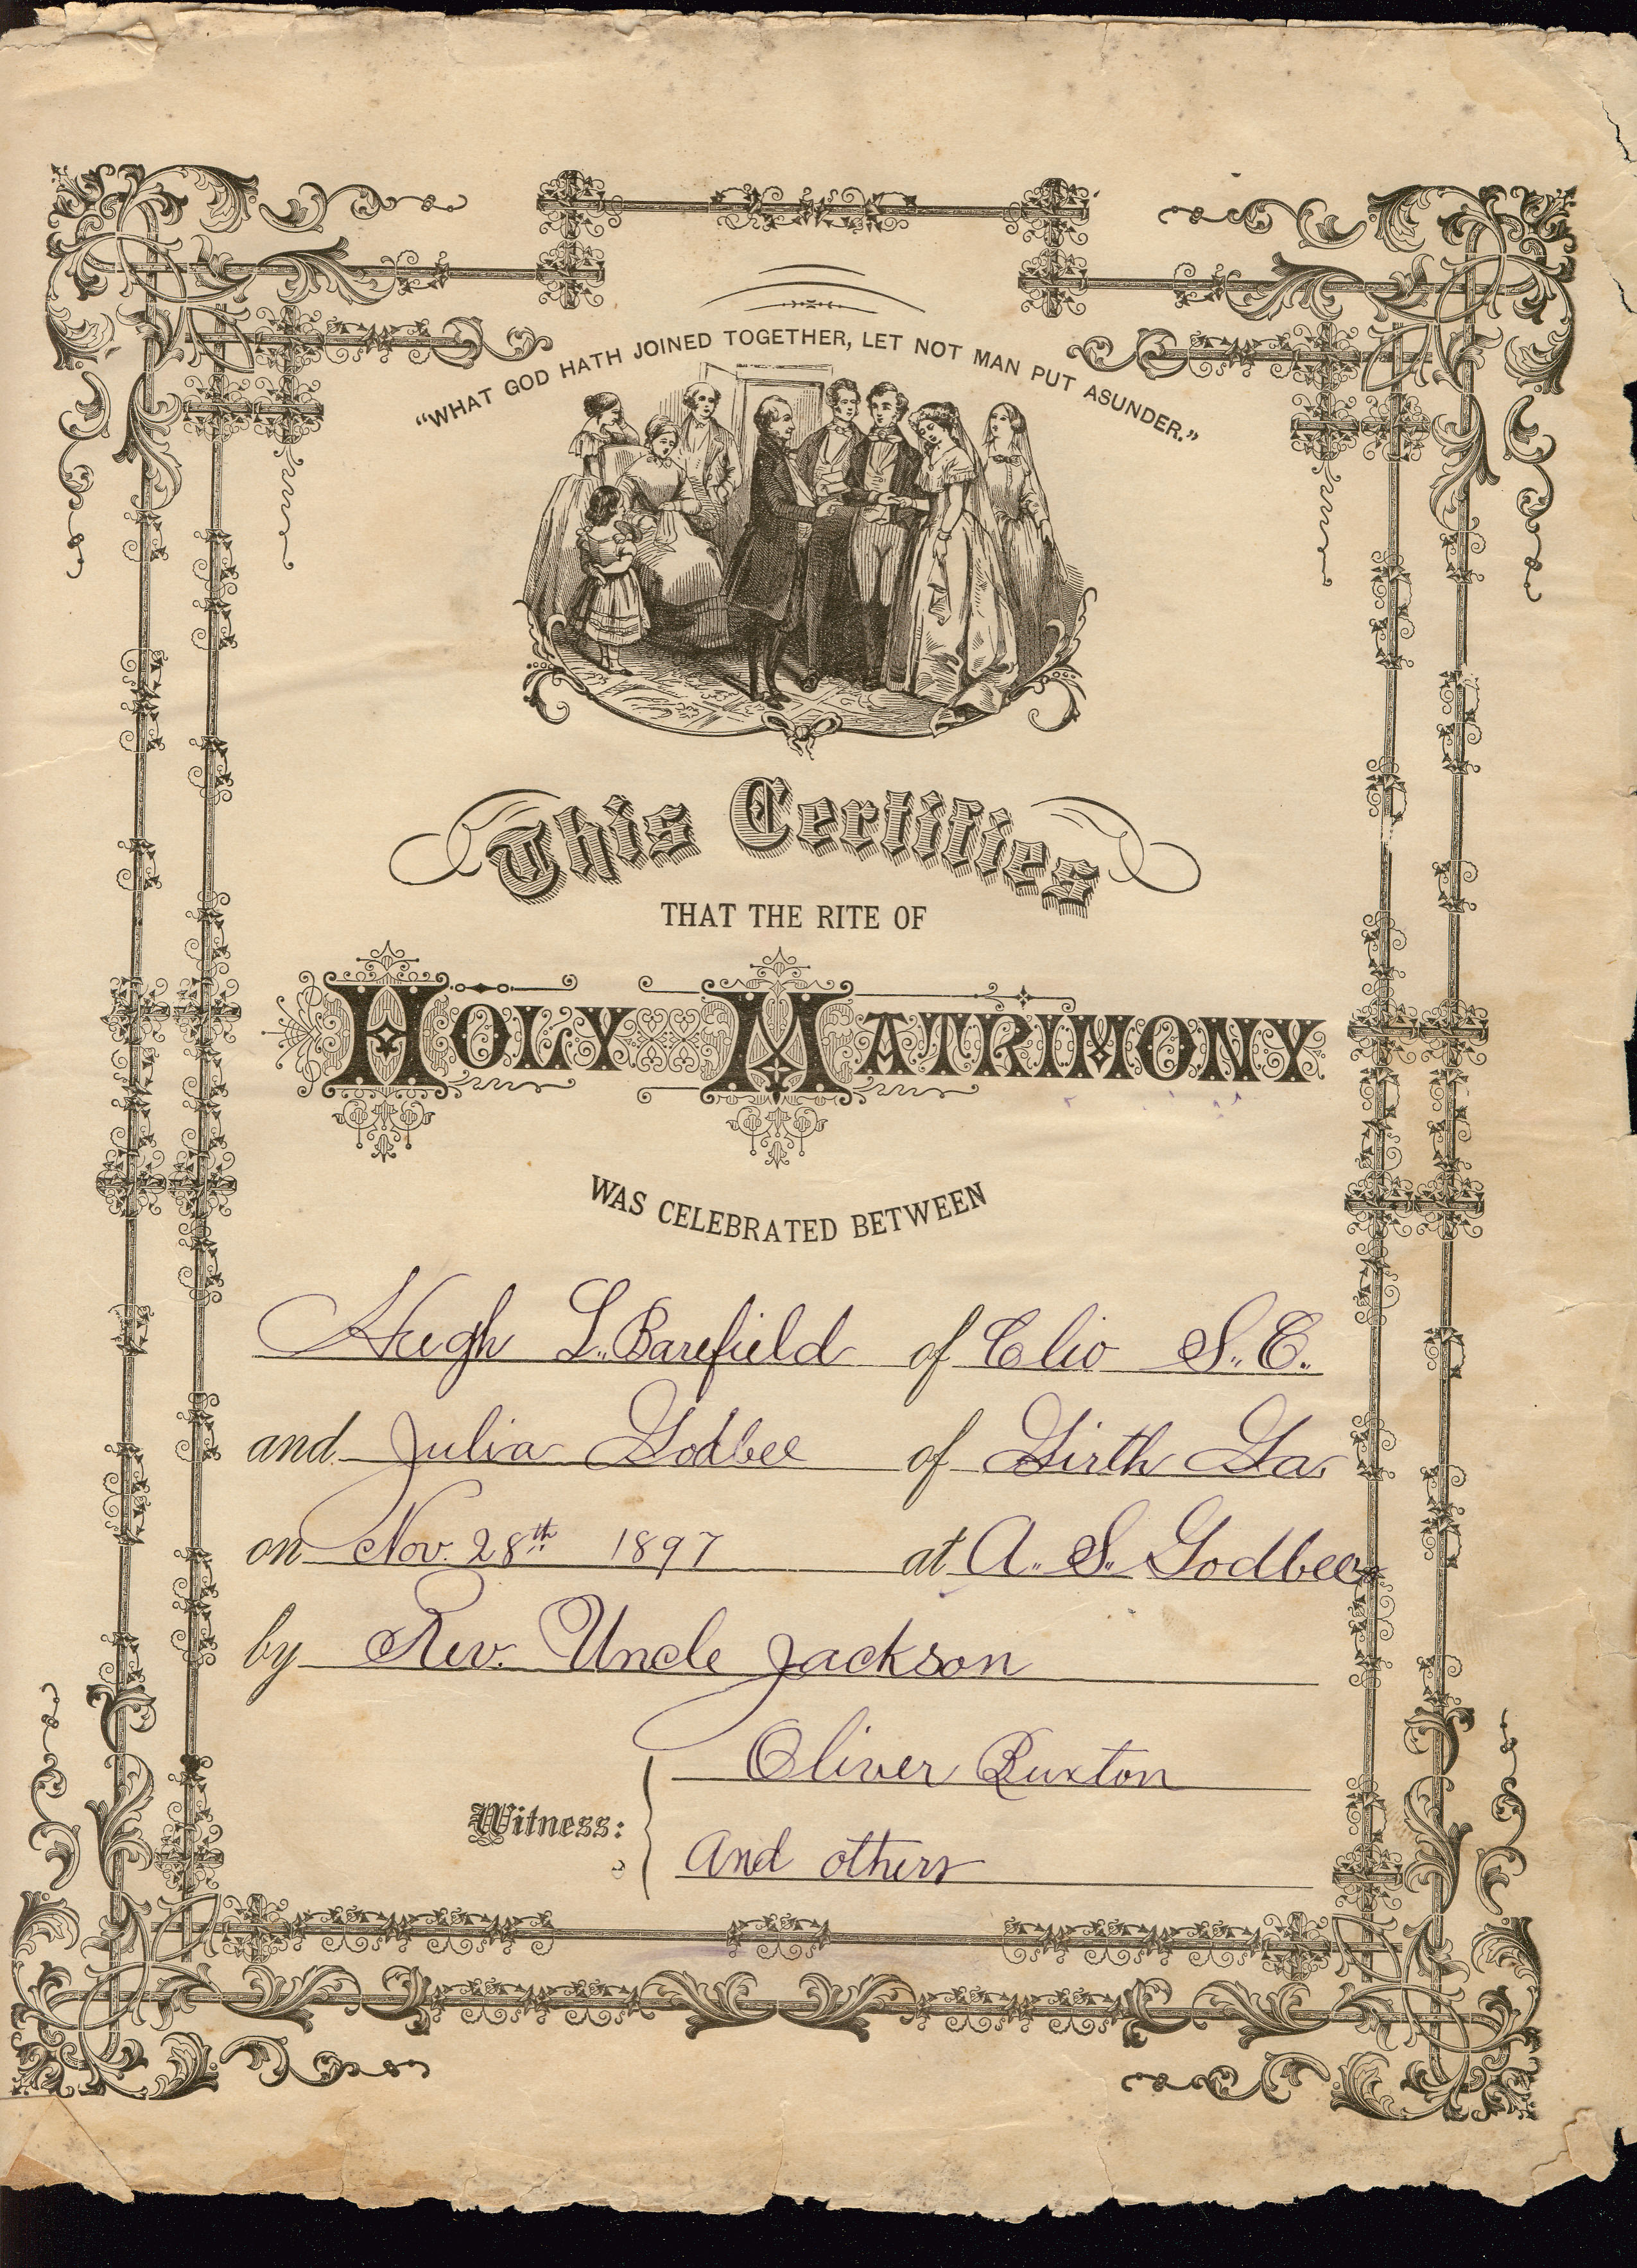 “WHAT GOD HATH JOINED TOGETHER, LET NOT MAN PUT ASUNDER.”
This Certifies
THAT THE RITE OF
HOLY MATRIMONY
WAS CELEBRATED BETWEEN
Hugh L. Barefield of Clio S. C.
and Julia Godbee of Girth Ga.
on Nov. 28th 1897 at A. S. Godbees
by Rev. Uncle Jackson
Oliver Buxton
Witness:
and others